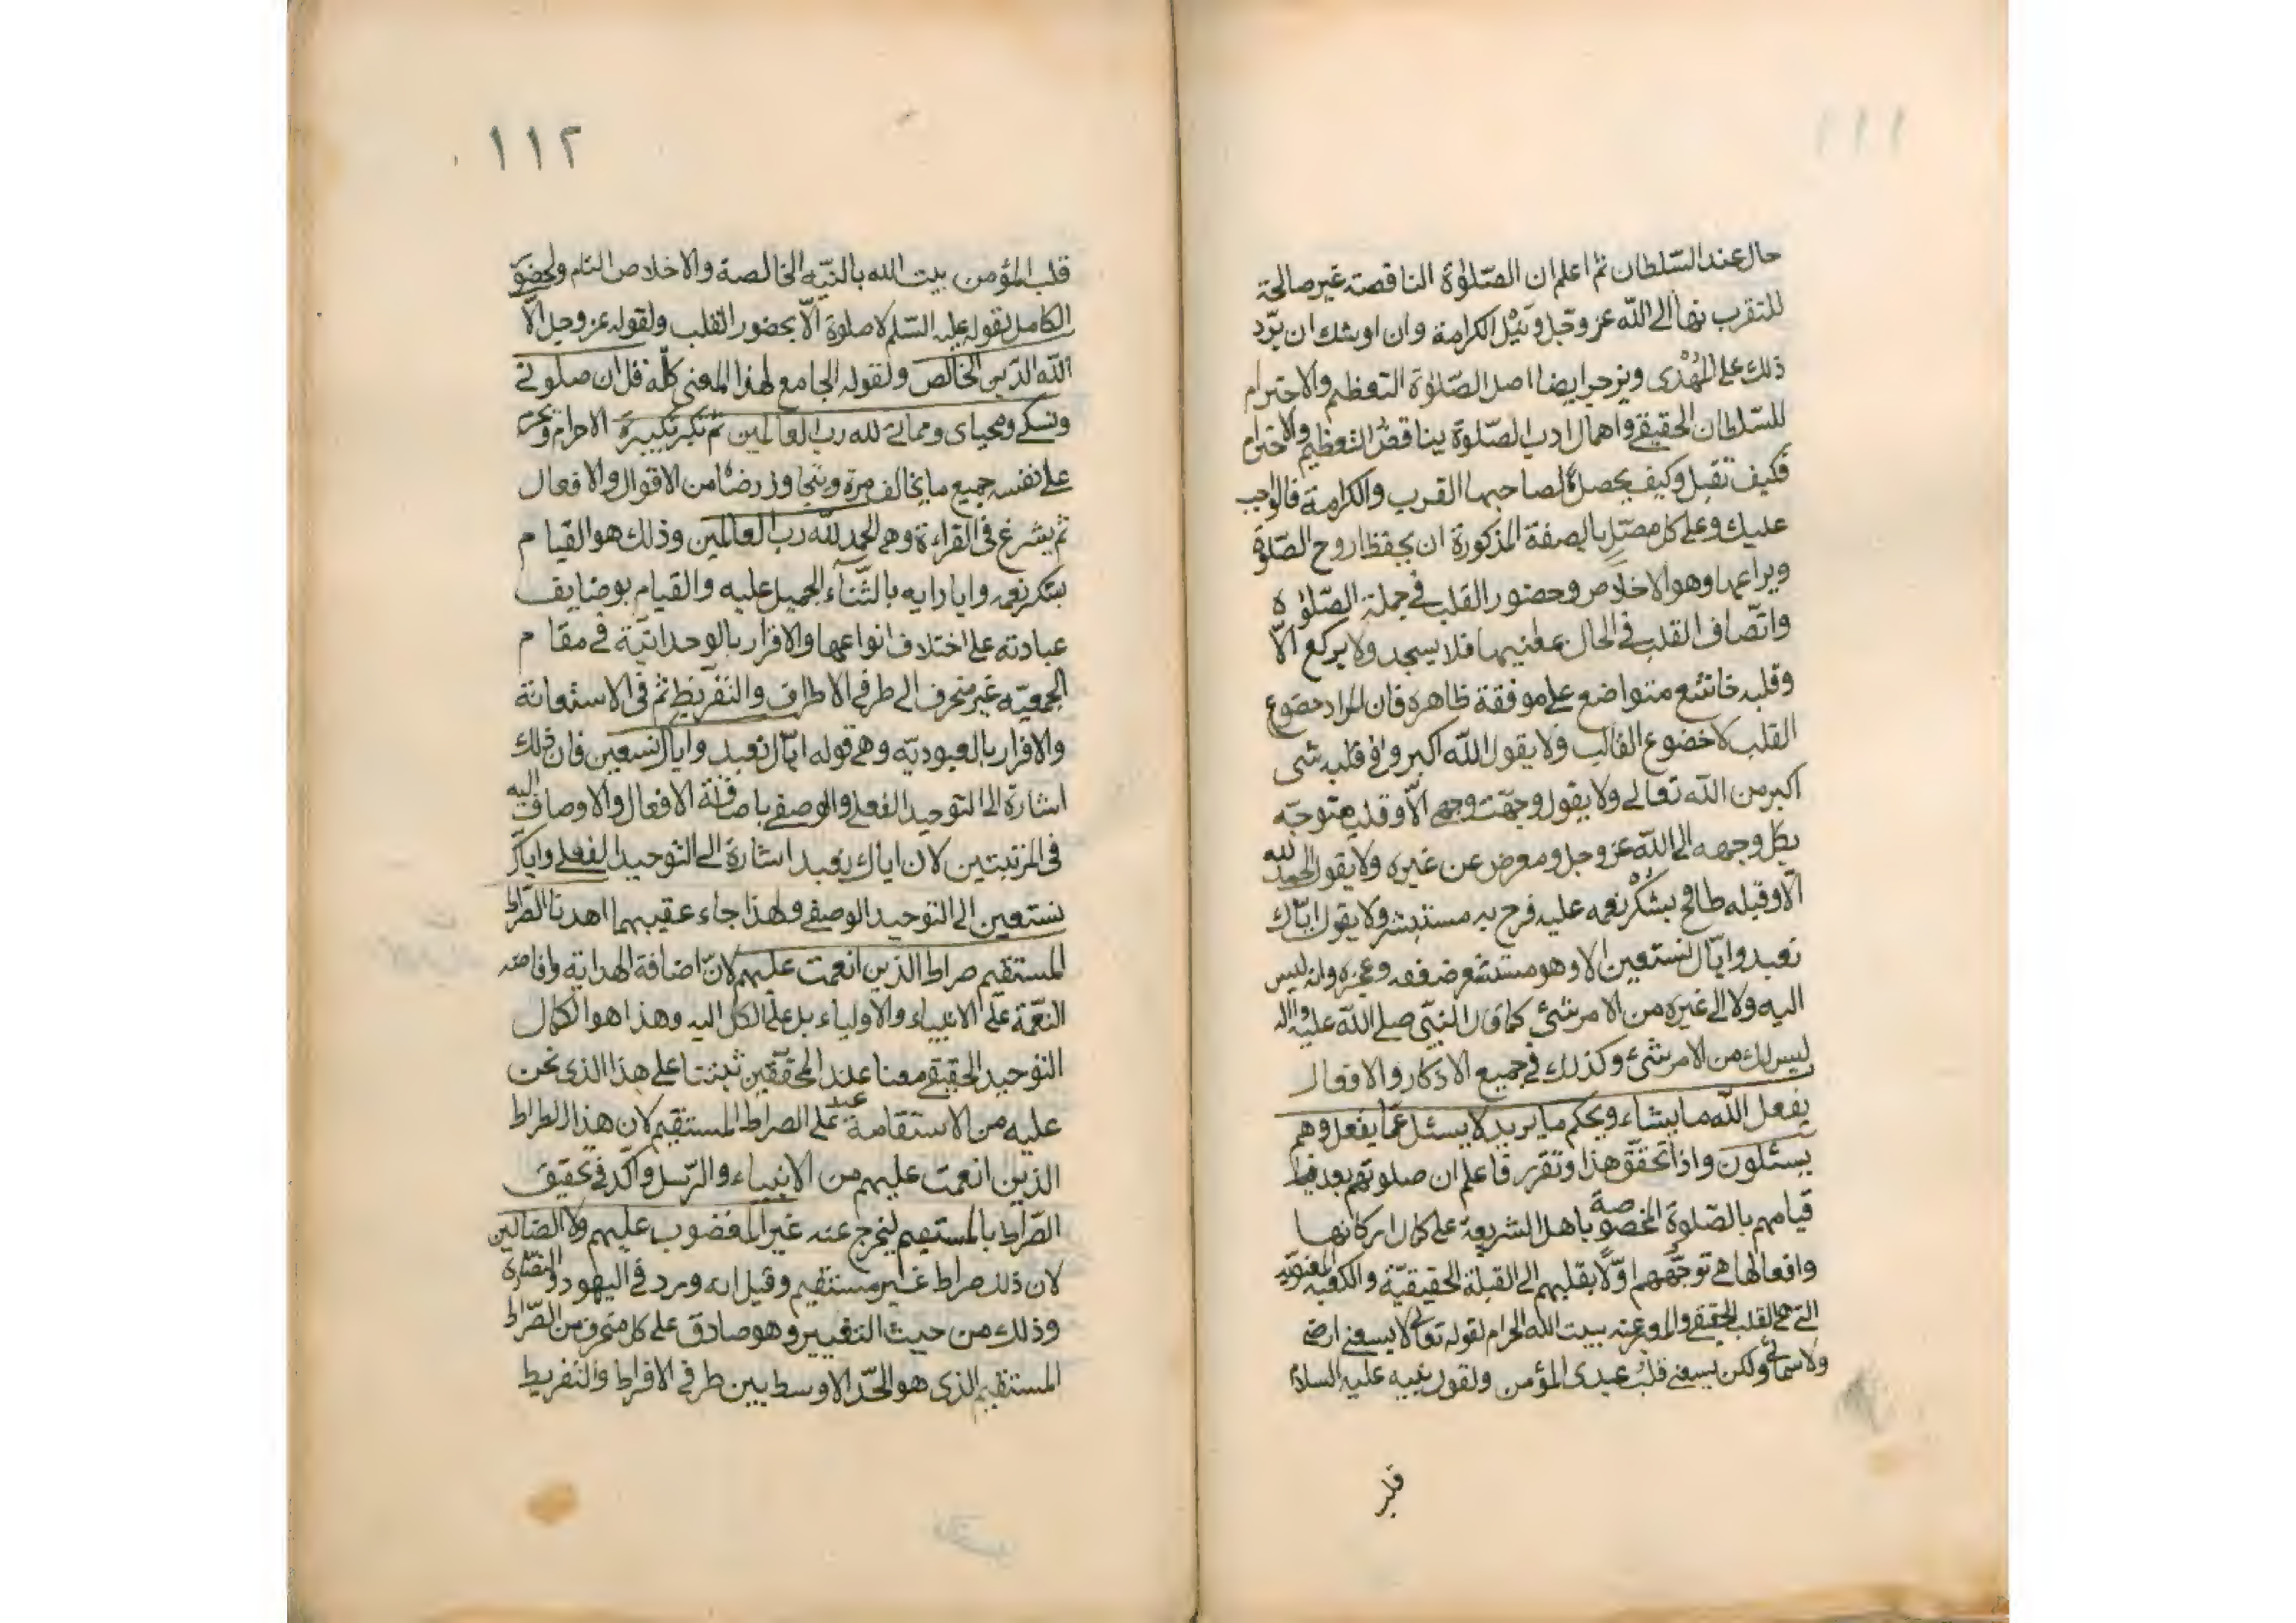 ١١١
حال عند السّلطان ثم اعلم ان الصّلوٰة الناقصة غير صالحة
للتقرب بها الى اللّه عز وجّل ونَيْل الكرامة وان اوشك ان يرّد
ذلك على المُهْدى ويزجر ايضا اصل الصّلوٰة التعظيم والاحترام
للسّلطان الحقيقى واهمال ادب الصّلوٰة يناقض التعظيم والاحترام
فكيف تقبل وكيف يحصل لصاحبها القرب والكرامة فالواجب
عليك وعلى كل مصّلٍ بالصفة المذكورة ان يحفظ اروح الصّلوٰة
ويراعيها وهو الاخلاص وحضور القلب فى جملة الصّلوٰة
واتّصاف القلب فى الحال بمعانيها فلا يسجد ولا يركع الّا
وقلبه خاشع متواضع على موفقة ظاهره فان المراد خضوع
القلب لا خضوع القالب ولا يقول اللّه اكبر وفى قلبه شى
اكبر من اللّه تعالى ولا يقول وجّهت وجهى الّا وقلبه متوجّه
بكل وجهه الى اللّه عز وجل ومعرض عن غيره ولا يقول الحمد لله
الّا وقلبه طافح بشُكْر نعمه عليه فرح به مستبشر ولا يقول ايّاك
نعبد وايّاك نستعين الا وهو مستشعر ضعفه وعجزه وانه ليس
اليه ولا الى غيره من الامر شئ كما قال النبّى صلى اللّه عليه واله
ليس لك من الامر شئ وكذلك فى جميع الاذكار والافعال
يفعل اللّه ما يشاء ويحكم ما يريد لا يسئل عمّا يفعل وهم
يسئلون واذا تحقّق هذا وتقرر فاعلم ان صلوتهم بعد
قيامهم بالصّلوة المخصوصة باهل الشريعة على كمال اركانها
وافعالها هى توجّههم اوّلًا بقلبهم الى القبلة الحقيقيّة والكعبه المعنويّه
التى هى القلب الحقيقى والمعبر عنه ببيت الله الحرام لقوله تعالى لا يسعنى ارضى
ولا سمائى ولكن يسعنى قلب عبدى المؤمن ولقول نبيه عليه السلام
قلب
١١٢
قلب المؤمن بيت الله بالنيّه الخالصة والاخلاص التام ولحضور
الكامل لقوله عليه السّلم لا صلوة الّا بحضور القلب ولقوله عز وجل الّا
للّه الدّين الخالص ولقوله الجامع لهذا المعنى كلّه قل ان صلوتى
ونسكى ومحياى ومماتى لله رب العالمين ثم تكبر تكبيرة الاحرام ويحرم
على نفسه جميع ما يخالف مره ويتجاوز رضاه من الاقوال والافعال
ثم يشرع فى القراءة وهى الحمد للّه رب العالمين وذلك هو القيام
بشكر نعمه وايارايه بالثّناء الجميل عليه والقيام بوضايف
عبادته على اختلاف انواعها والاقرار بالوحدانيّة فى مقام
الجمعيّه غير منحرف الى طرفى الاطراف والتفريط ثم فى الاستعانة
والاقرار بالعبوديّه وهى قوله ايّاك نعبد واياك نستعين فان ذلك
اشارة الى التوحيد الفعلى والوصفى باضافة الافعال والاوصاف اليه
فى المرتبتين لان اياك نعبد اشارة الى التوحيد الفعلى واياك
نستعين الى التوحيد الوصفى ولهذا جاء عقيبهما اهدنا الصّراط
المستقيم صراط الذين انعمت عليهم لانّ اضافة الهداية وافاضه
النعّمة على الانبياء والاولياء بل على الكل اليه وهذا هو الكمال
التوحيد الحقيقى معنا عند المحقّقين ثبتنا على هذا الذى نحن
عليه من الاستقامة عند على الصراط المستقيم لان هذا الطراط
الذين انعمت عليهم من الانبياء والرّسل واكّد فى تحقيق
الصّراط بالمستقيم ليخرج عنه غير المغضوب عليهم ولا الضالين
لان ذلك صراط غير مستقيم وقيل انه ورد فى اليهود والنصّارة
وذلك من حيث التغيير وهو صادق على كل منحرف من الصّراط
المستقيم الذى هو الحّد الاوسط بين طرفى الافراط والتفريط